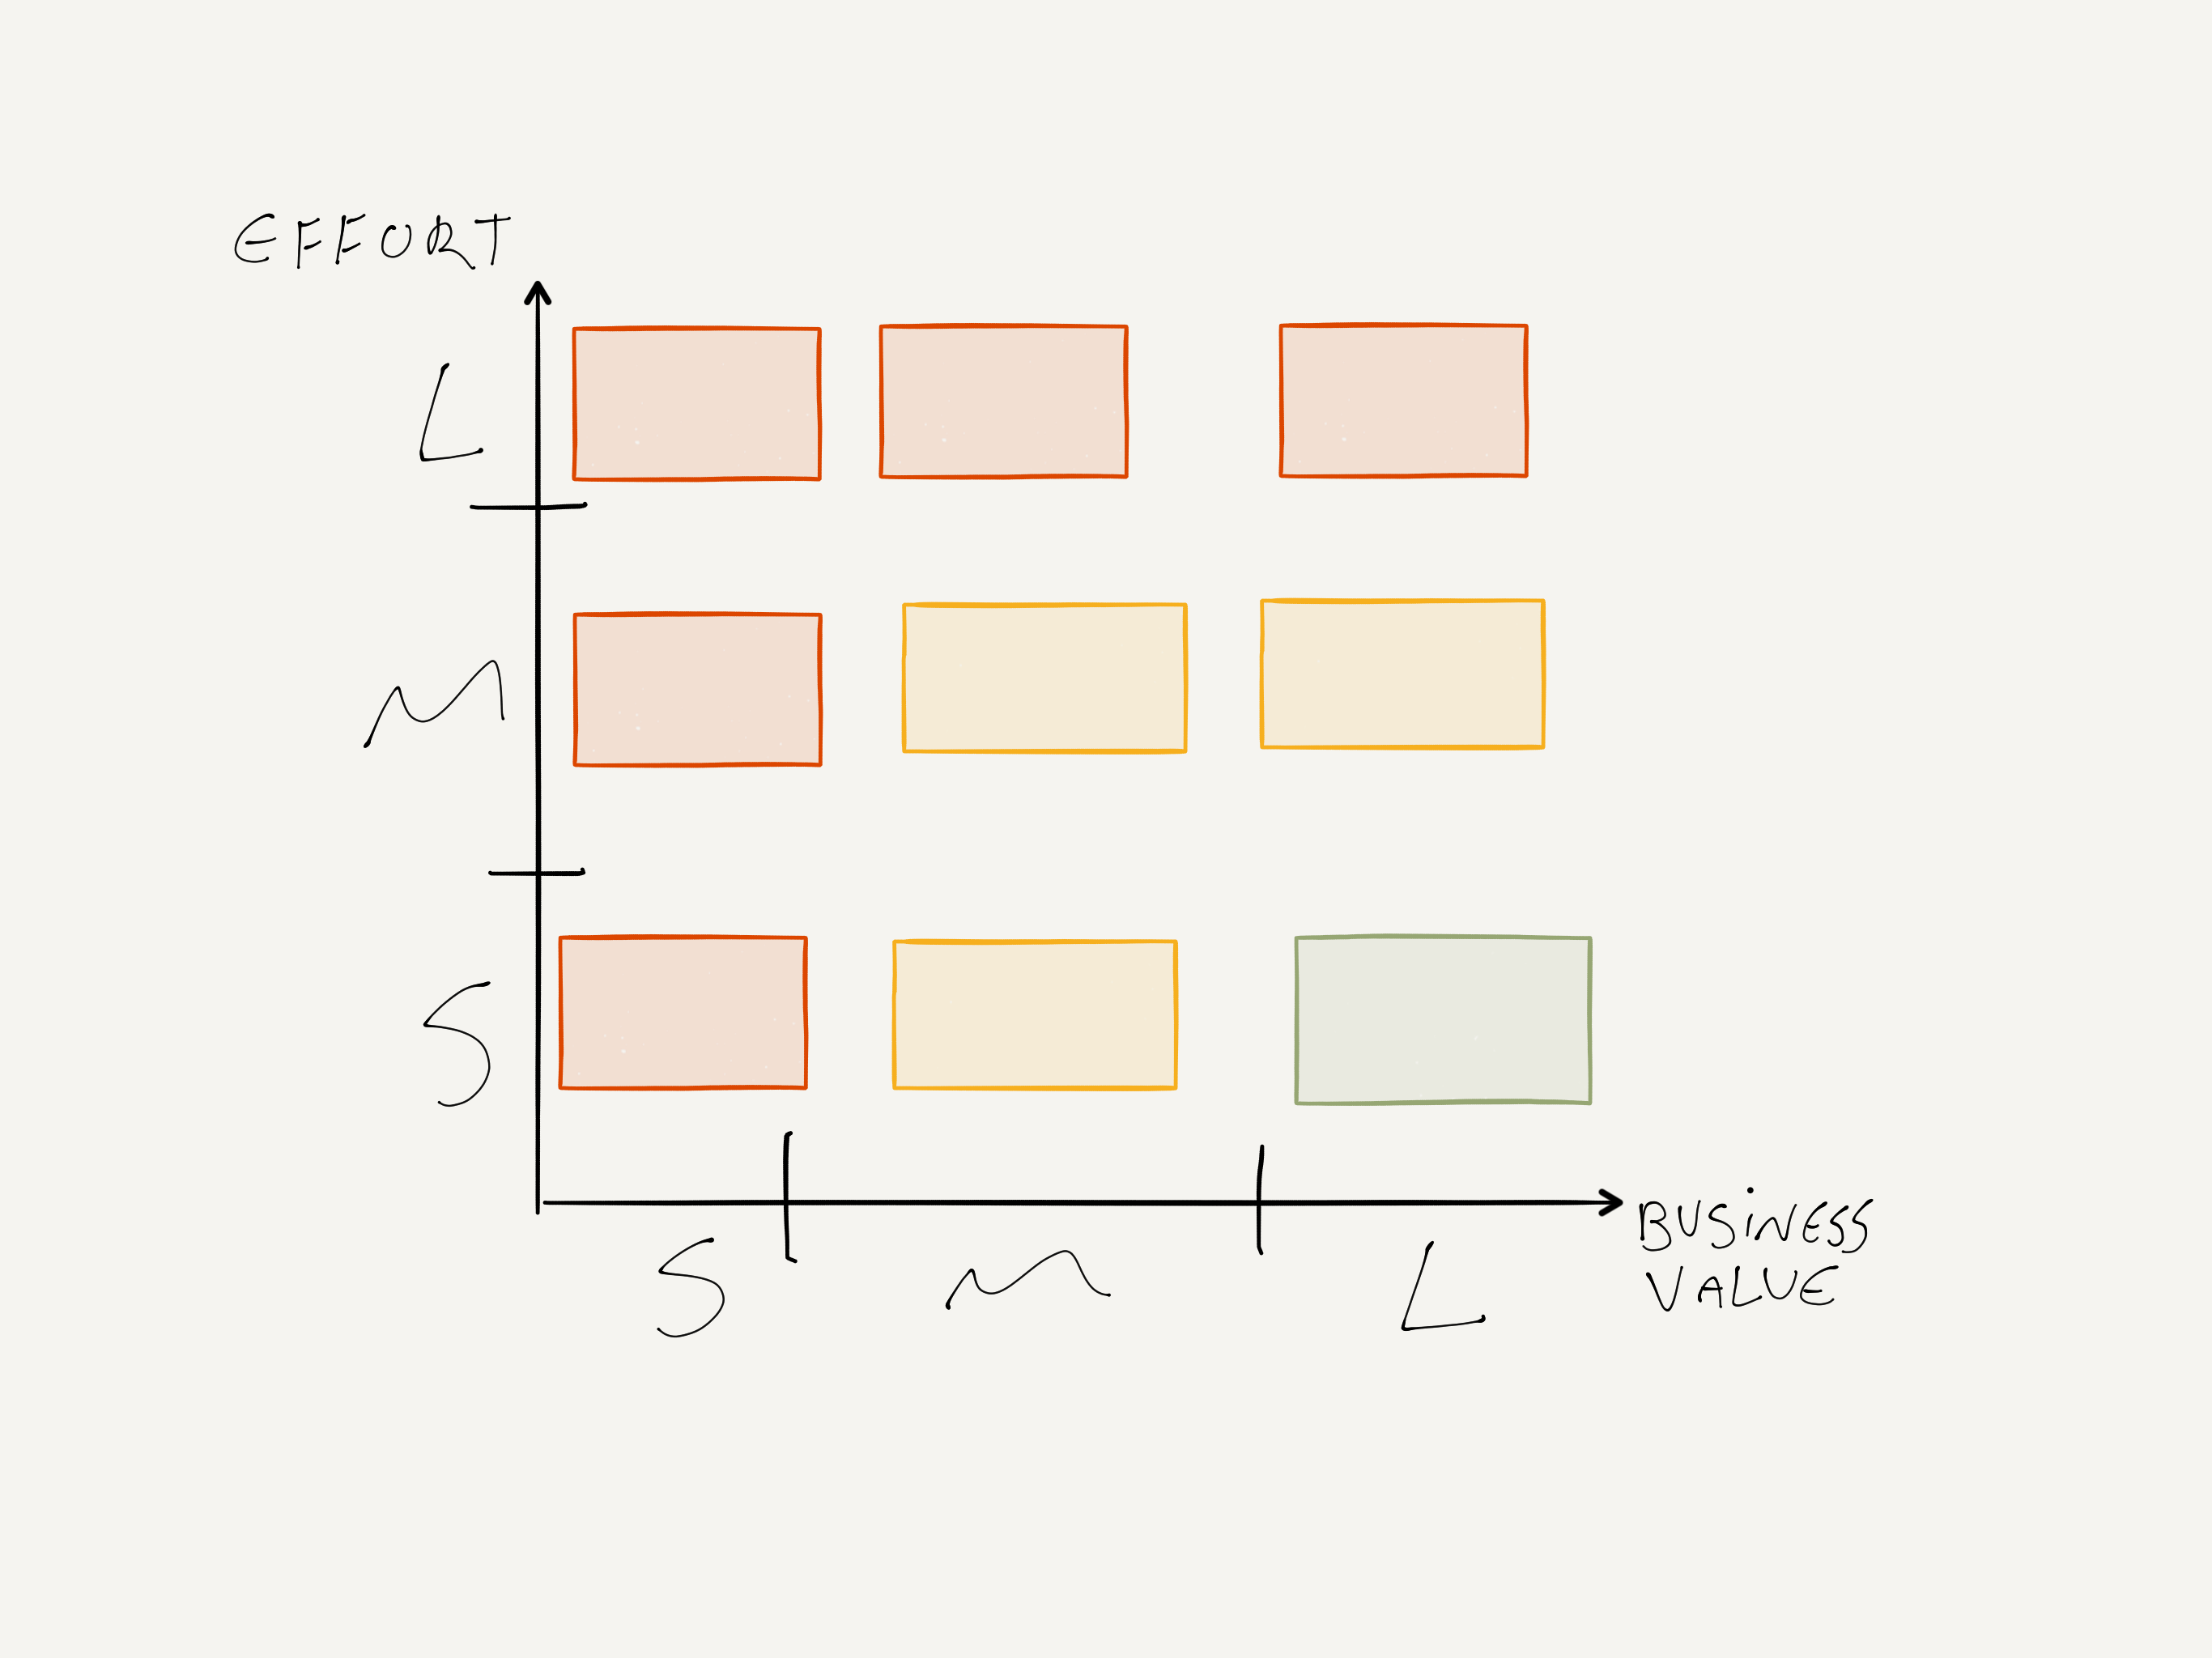 EFFORT
L
M
S
S
M
L
BUSiNESS
VALUE